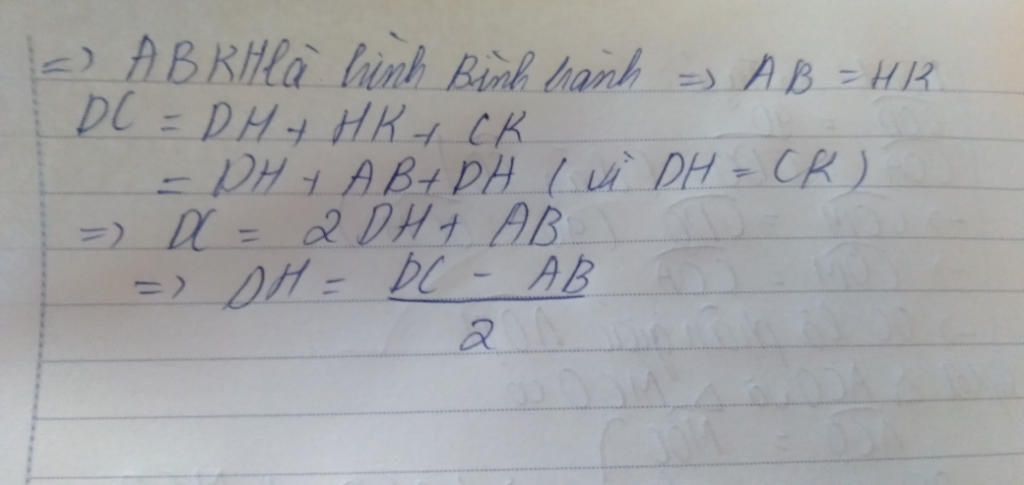 => ABKH là hình Bình hành => AB = HK
DC = DH + HK + CK
= DH + AB + DH ( vì DH = CK )
=> DC = 2 DH + AB
=> DH = DC - AB
2